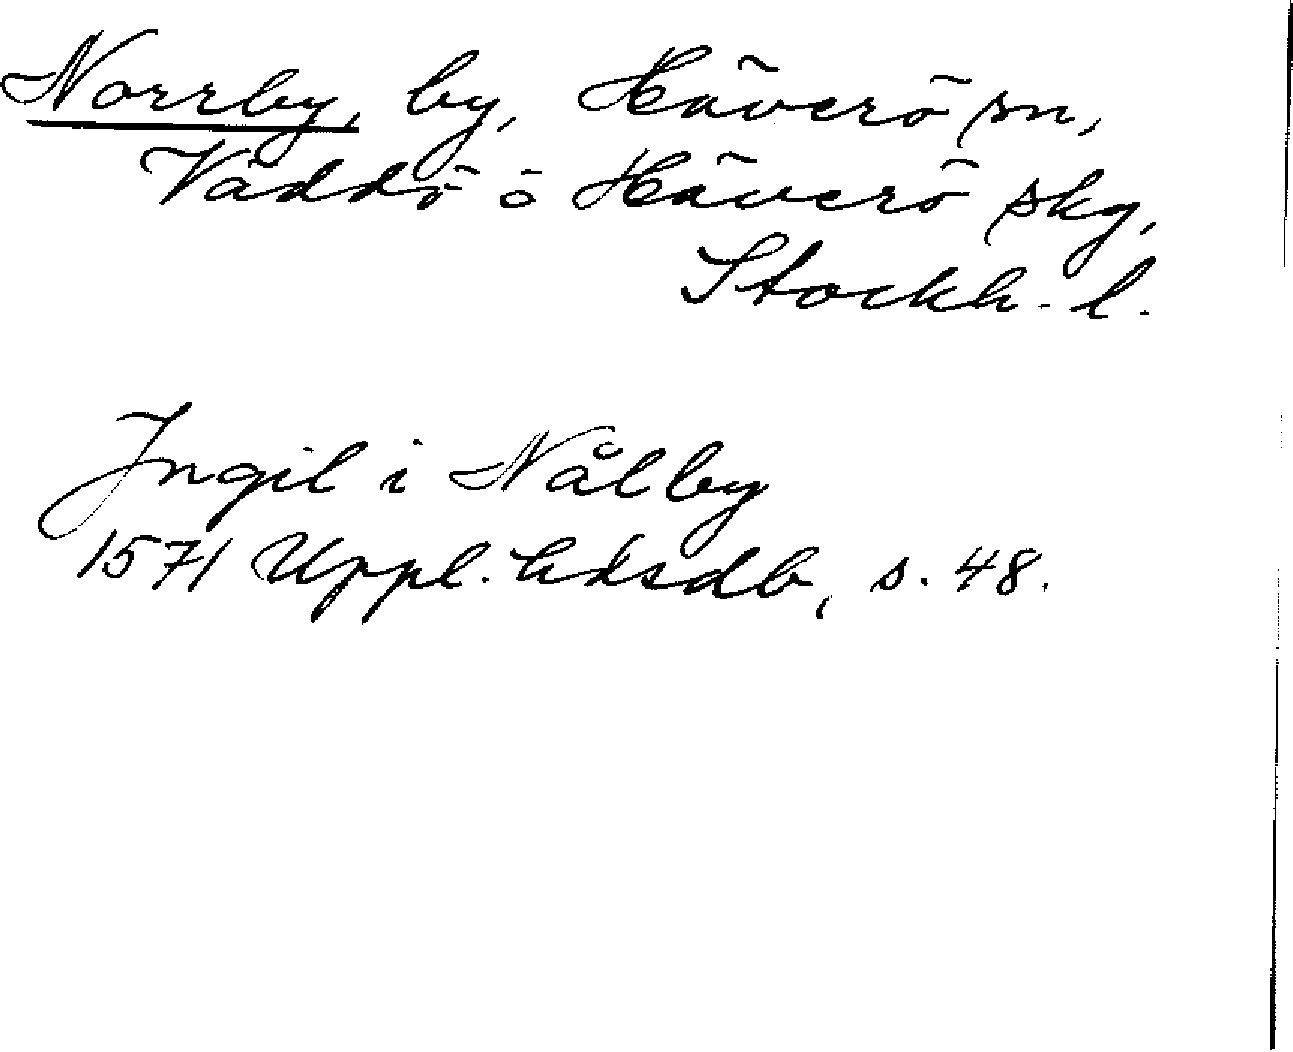 Norrby, by, Häverö sn,
Väddö o Häverö skg,
Stockh. l.
Ingil i Nålby
1571 Uppl. hdsdb, s. 48.